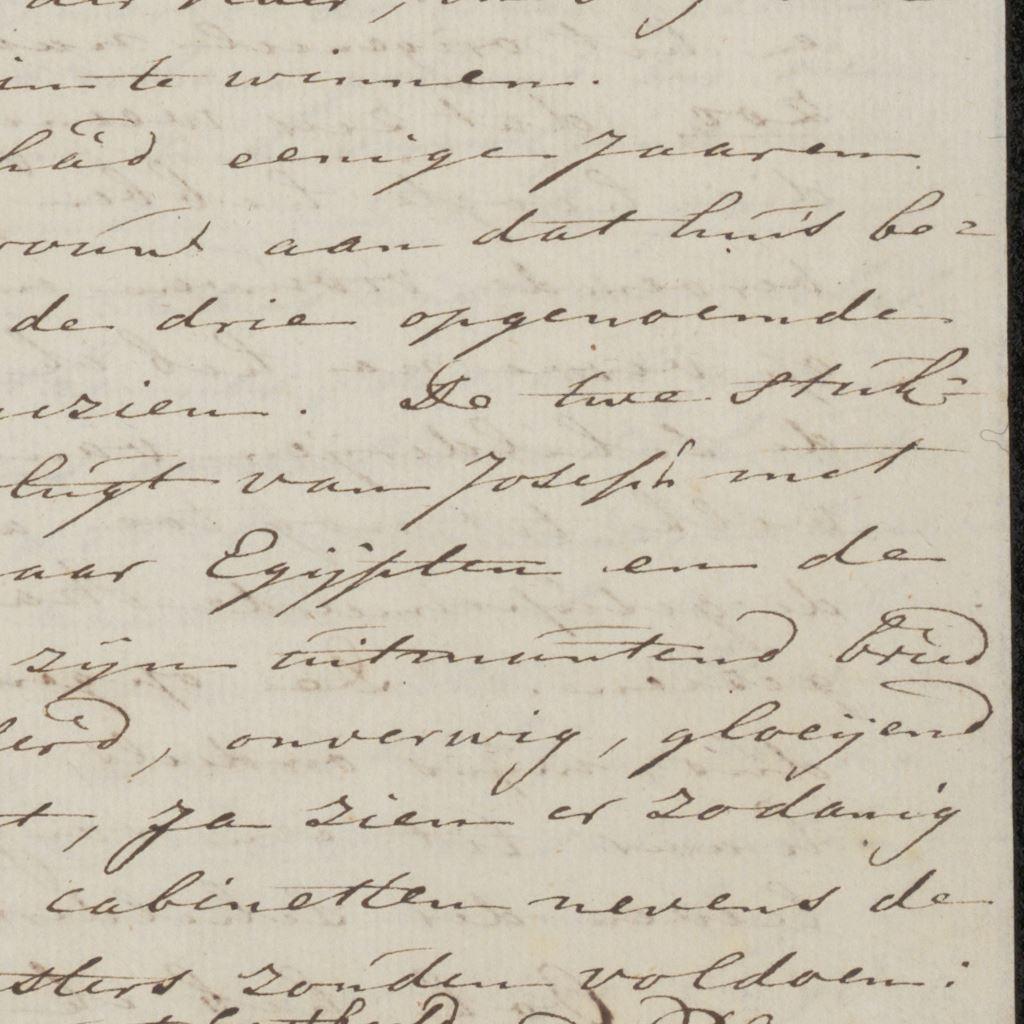 in te winnen.
hād eenige Jaaren
aan dat huis be=
de drie opgenoemde
zien. De twe stuk=
lugt van Joseph met
aar Egijpten en de
zijn uitmuntend
onverwig, gloeijend
t, Ja zien er zodanig
cabinetten nevens de
sters zouden voldoen: